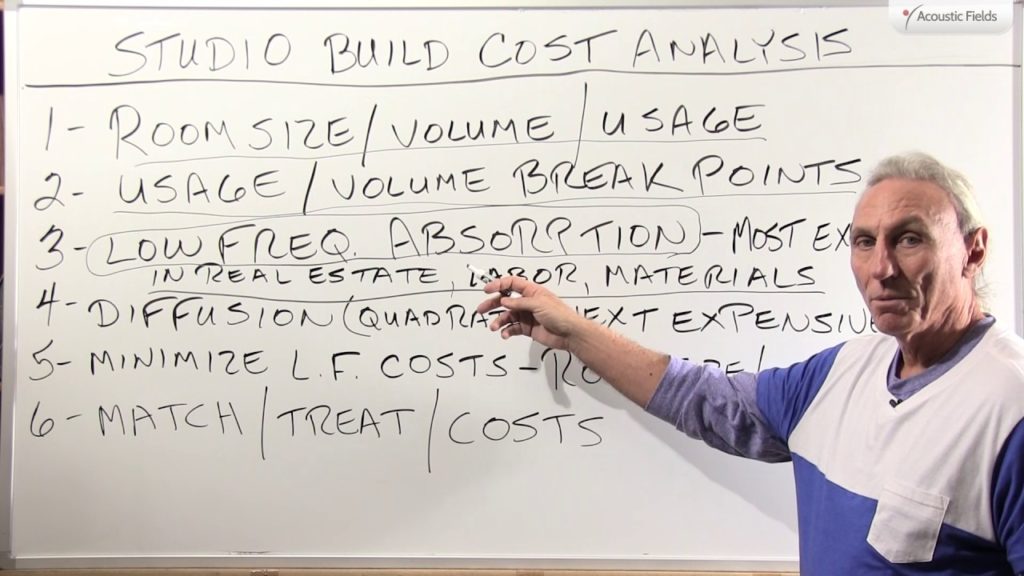 Acoustic Fields
STUDIO BUILD COST ANALYSIS
1- ROOM SIZE/VOLUME/USAGE
2- USAGE/VOLUME BREAK POINTS
3- LOW FREQ. ABSORPTION - MOST
IN REAL ESTATE, LABOR, MATERIALS
4- DIFFUSION (QUADRAT NEXT EXPENSIVE
5- MINIMIZE L.F. COSTS -
6- MATCH/TREAT/COSTS